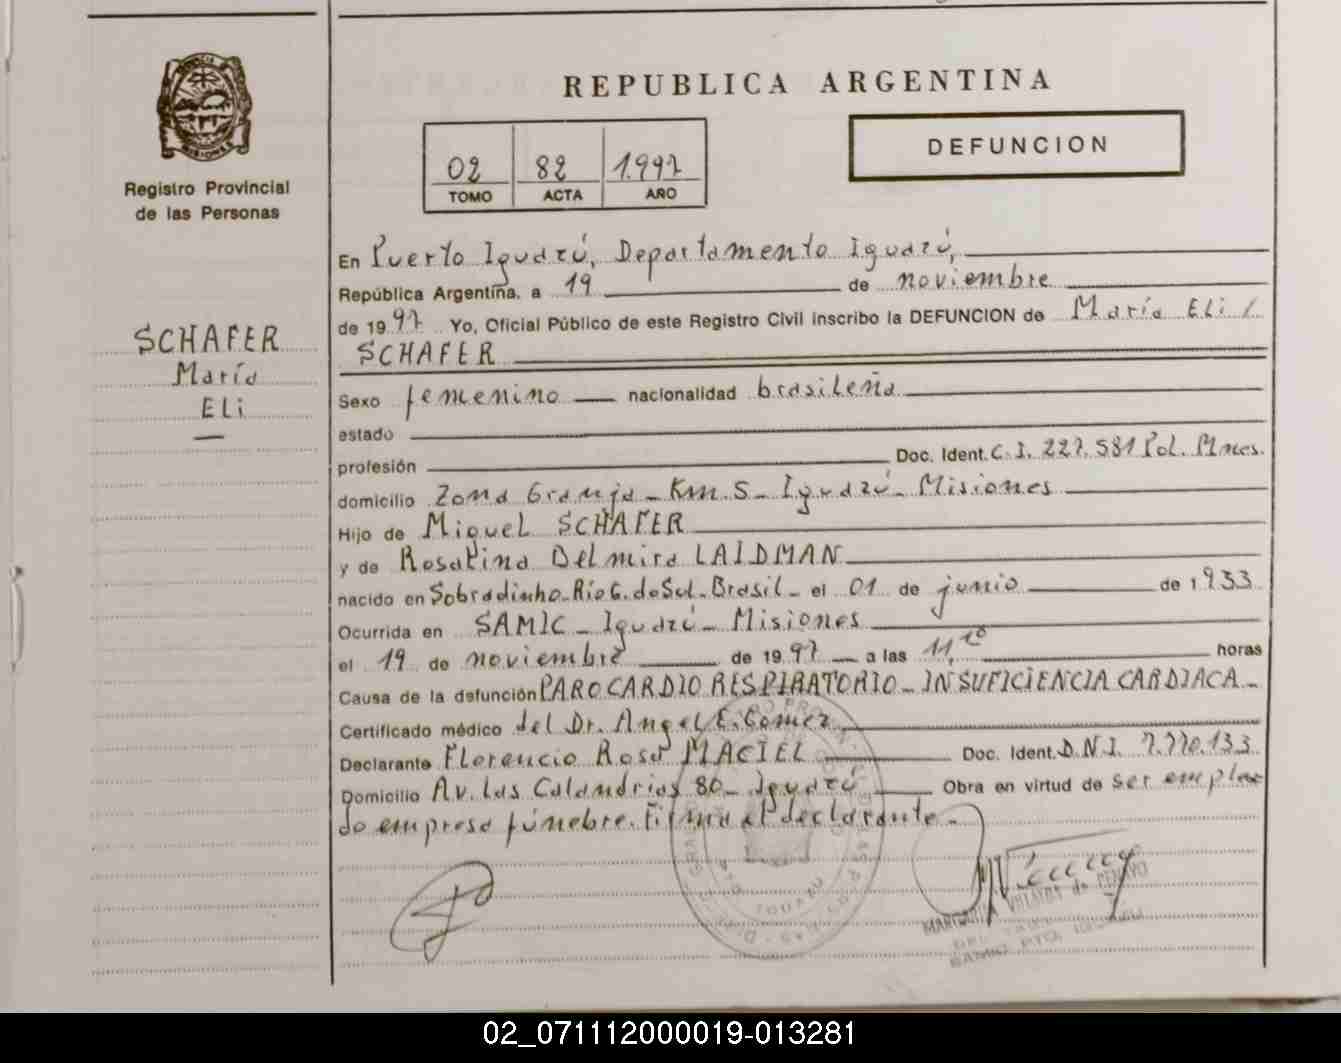 REPUBLICA ARGENTINA
DEFUNCION
02 82 1.997
TOMO ACTA AÑO
Registro Provincial
de las Personas
SCHAFER
María
ELi
En Puerto Iguazú, Departamento Iguazú,
República Argentina, a 19 de noviembre
de 1997 Yo, Oficial Público de este Registro Civil inscribo la DEFUNCION de María ELi /
SCHAFER
Sexo femenino nacionalidad brasileña
estado
profesión Doc. Ident. C.I. 227.581 Pol. Mnes.
domicilio Zona Granja - Km. 5 - Iguazú - Misiones
Hijo de Miguel SCHAFER
y de Rosalina Delmira LAIDMAN
nacido en Sobradinho - Río G. do Sul - Brasil - el 01 de junio de 1933
Ocurrida en SAMIC - Iguazú - Misiones
el 19 de noviembre de 1997 a las 11,10 horas
Causa de la defunción PARO CARDIO RESPIRATORIO - INSUFICIENCIA CARDIACA -
Certificado médico del Dr. Angel E. Gomez
Declarante Florencio Rosa MACIEL Doc. Ident. D.N.I. 7.770.133
Domicilio Av. Las Calandrias 80 - Iguazú Obra en virtud de ser emplea
do empresa fúnebre. Firma el declarante -
02_071112000019-013281